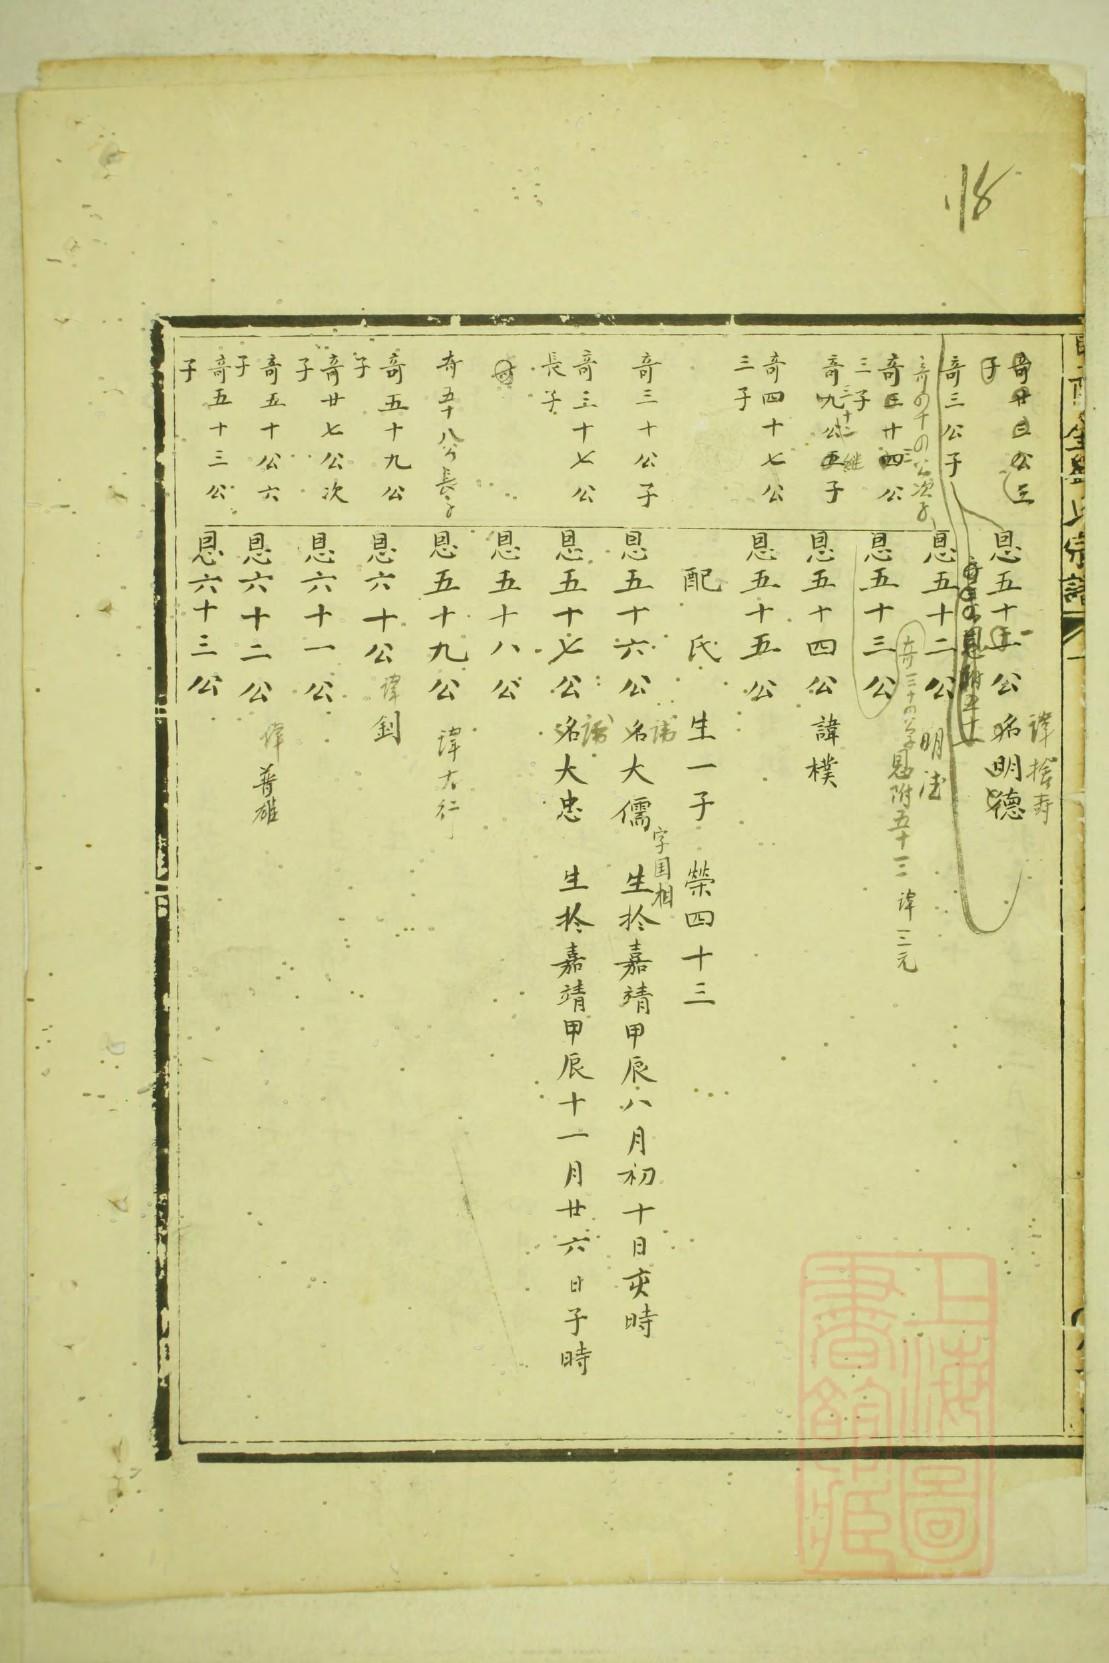 118
奇三公子
恩五十公 名明德
諱捨壽
恩五十二公 明法
奇四十四公次子
三子
恩五十三公
奇三十四公子恩附五十三 諱三元
奇九公子
三十二繼
恩五十四公 諱樸
奇四十七公
三子
恩五十五公
配 氏 生一子 榮四十三
奇三十公子
恩五十六公 名大儒 生於嘉靖甲辰八月初十日亥時
諱
字国相
奇三十七公
長子
恩五十七公 名大忠 生於嘉靖甲辰十一月廿六日子時
諱
恩五十八公
奇五十八公長子
恩五十九公 諱大行
奇五十九公
子
恩六十公 諱釗
奇廿七公次
子
恩六十一公
奇五十公六
子
恩六十二公 諱普雄
奇五十三公
子
恩六十三公
上海圖
書館藏